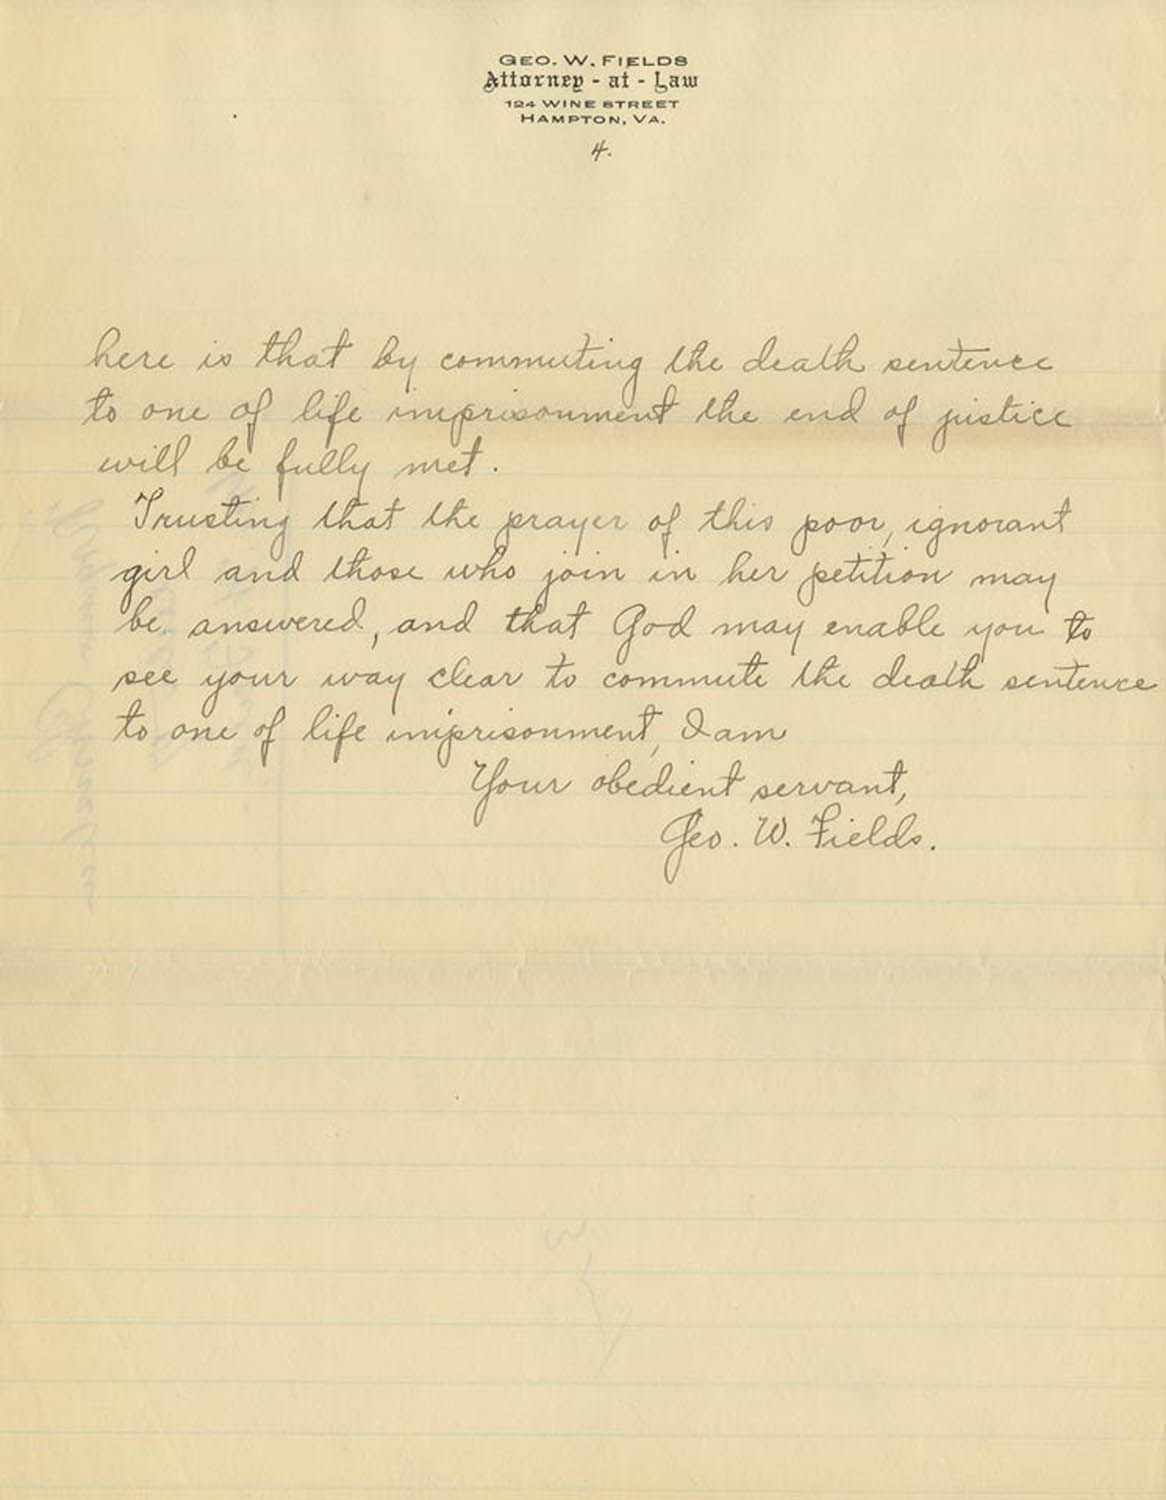 GEO. W. FIELDS
Attorney - at - Law
124 WINE STREET
HAMPTON, VA.
4.
here is that by commuting the death sentence
to one of life imprisonment the end of justice
will be fully met.
Trusting that the prayer of this poor, ignorant
girl and those who join in her petition may
be answered, and that God may enable you to
see your way clear to commute the death sentence
to one of life imprisonment, I am
Your obedient servant,
Geo. W. Fields.